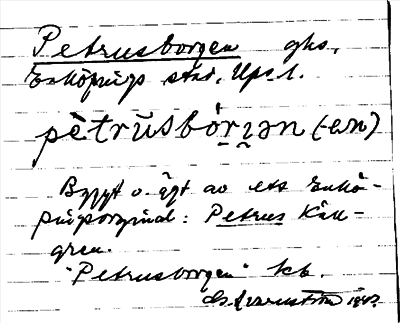 Petrusborgen ghs.
Enköpings stad, Upsl.
pètrŭsbór̤ı̯ən (-en)
Byggt o. ägt av ett Enkö-
pingsoriginal: Petrus Käll-
gren.
"Petrusborgen" kb.